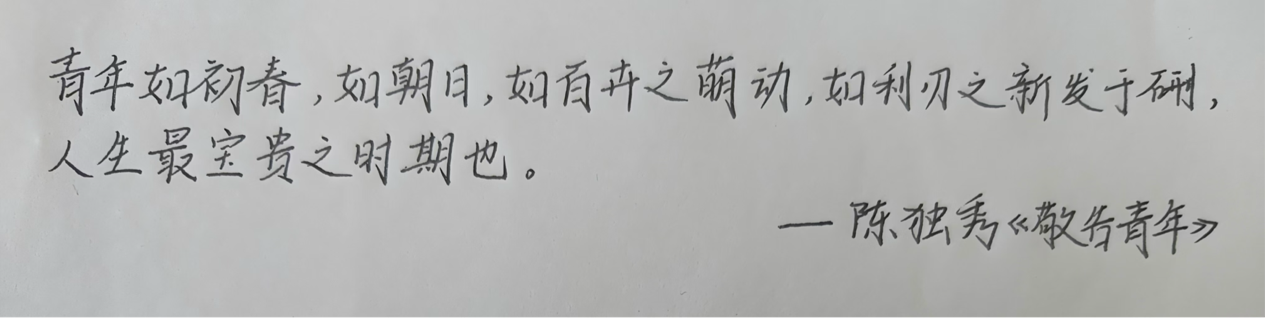 青年如初春,如朝日,如百卉之萌动,如利刃之新发于硎,
人生最宝贵之时期也。
—陈独秀《敬告青年》